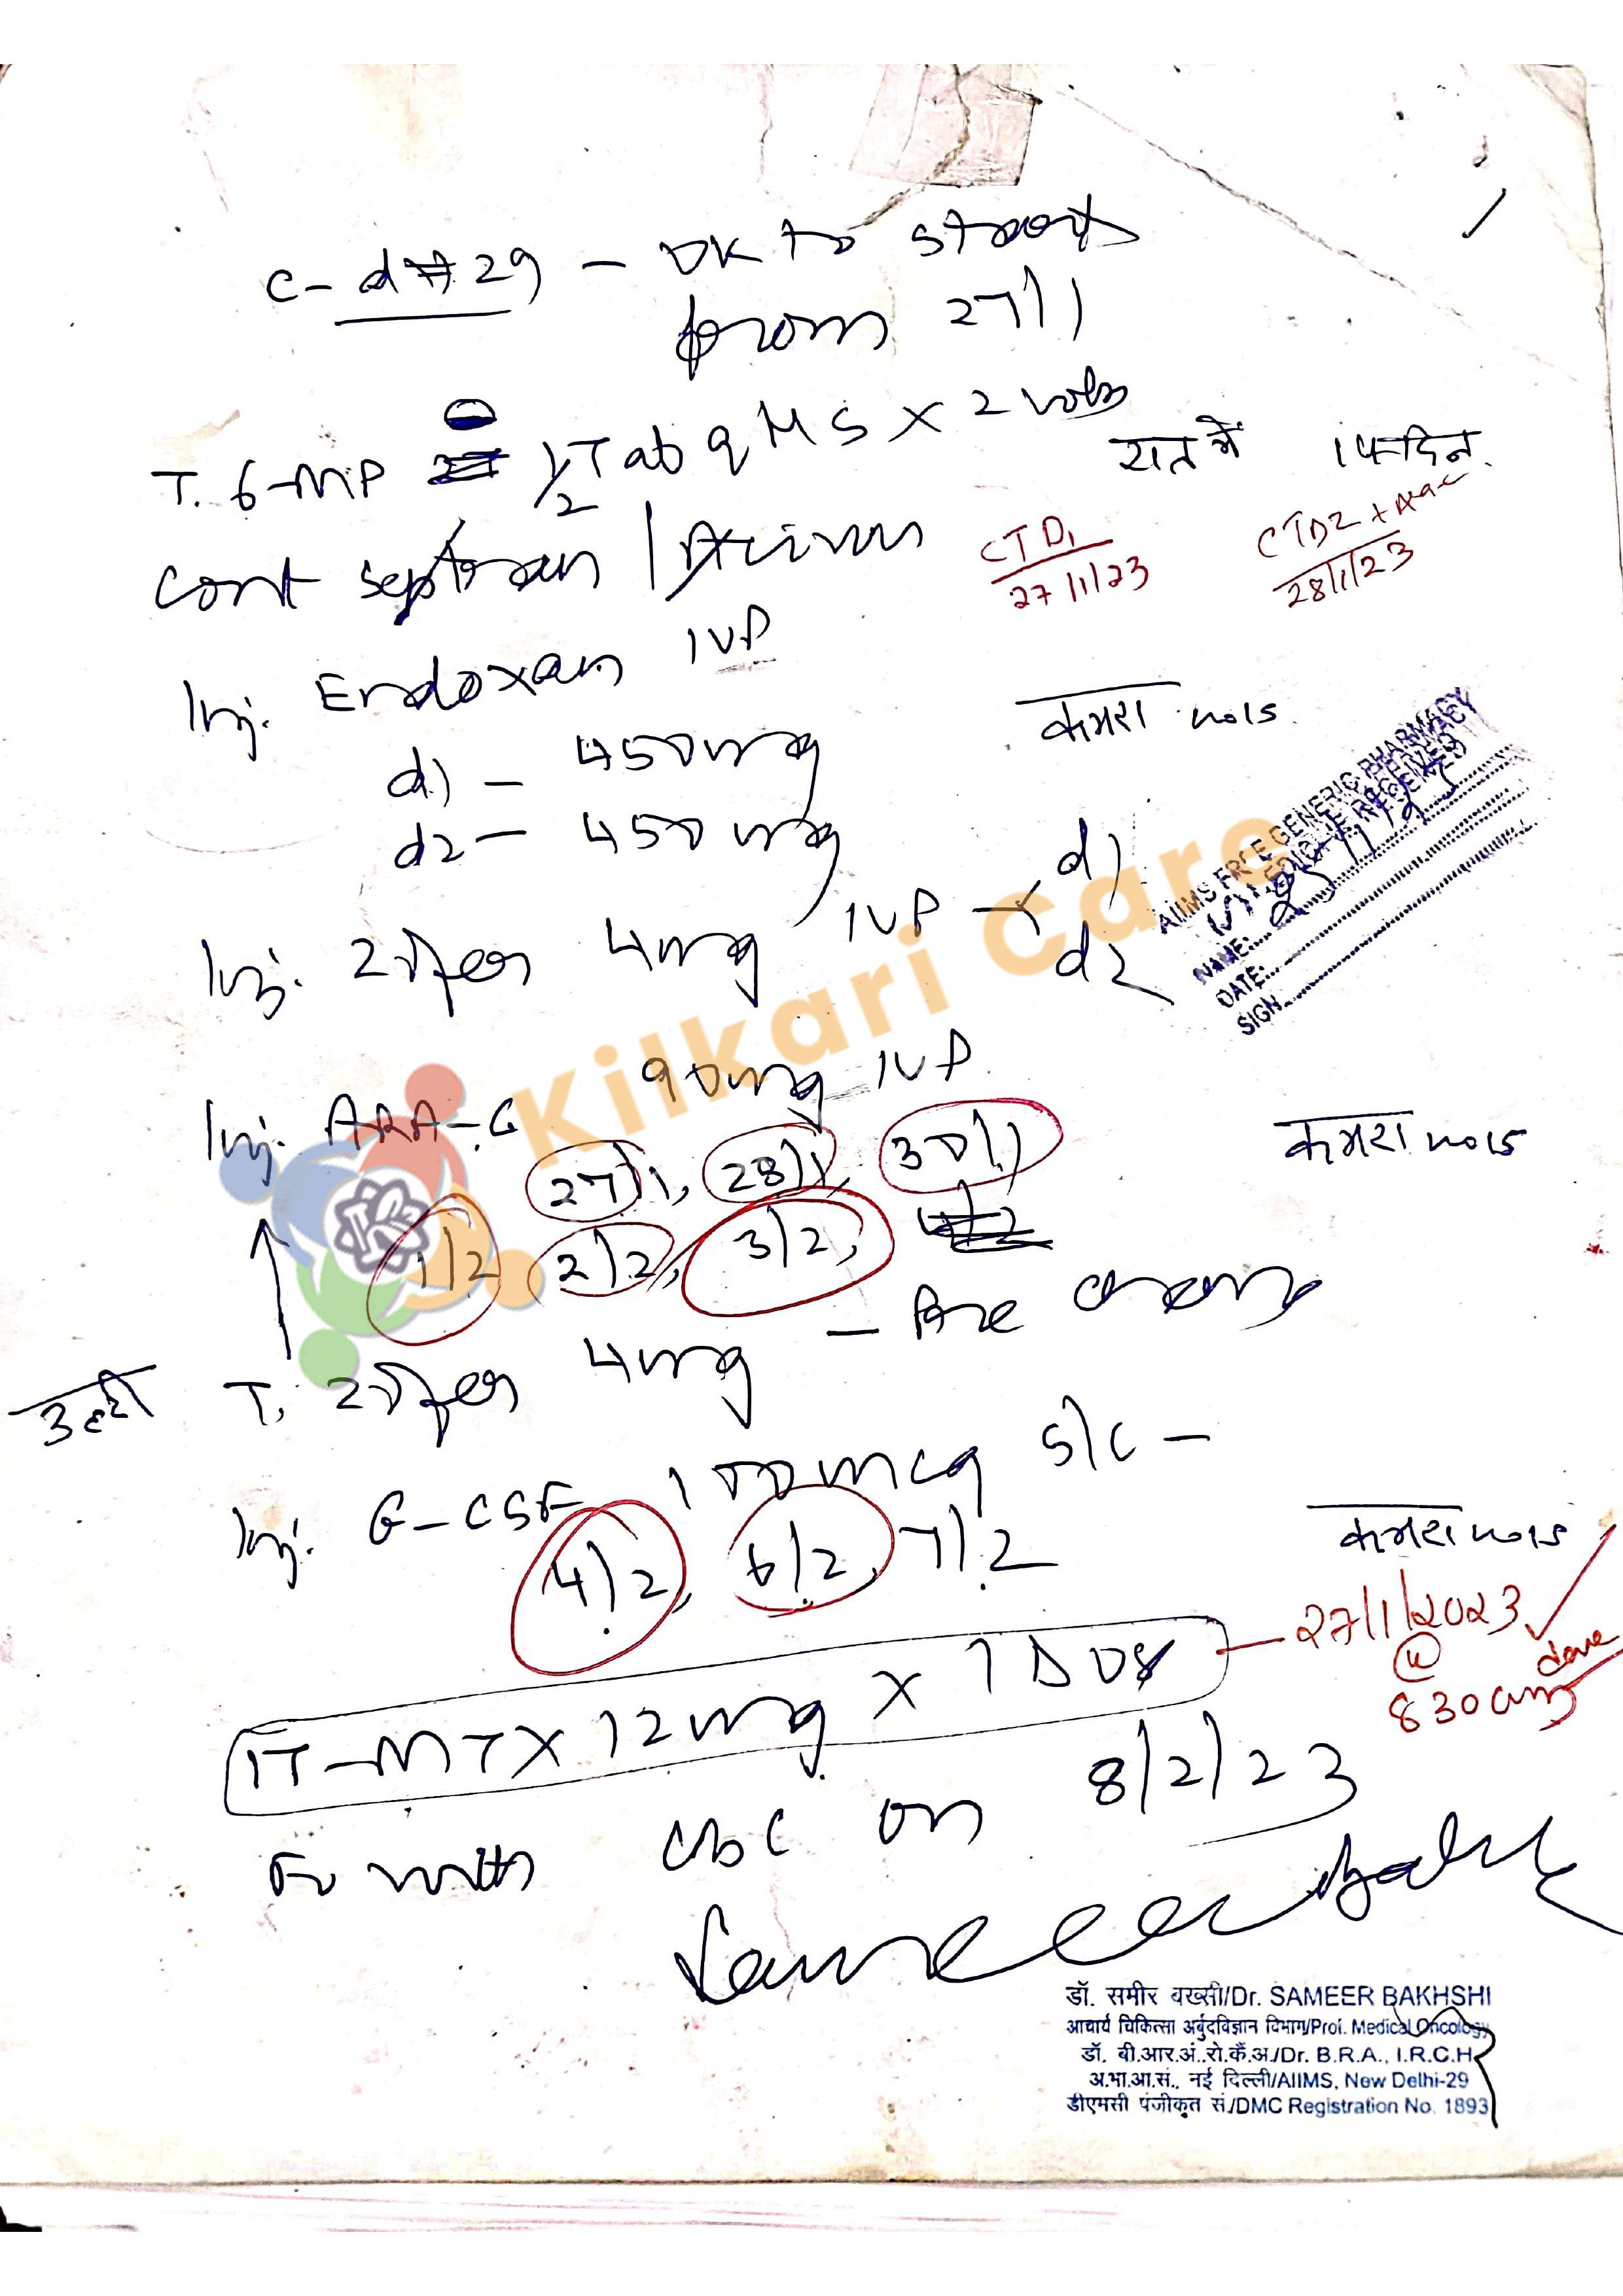 C- d# 29 - OK to start
from 27/1
T. 6-MP 1/2 Tab qHS X 2 wks
रात में 14 दिन.
cont septran
CTD1
27/1/23
CTD2 + Arac
28/1/23
Inj. Endoxan IVP
d1 - 450mg
कमरा no 15
d2 - 450mg
AIIMS FREE GENERIC PHARMACY
MEDICINE RECEIVED
NAME:
DATE:
SIGN
Inj. Zofer 4mg IVP X d1
d2
Kilkari Care
Inj. ARA-C 90mg IVP
27/1, 28/1, 30/1
कमरा no 15
1/2 2/2, 3/2,
उल्टी T. Zofer 4mg - Pre chemo
Inj. G-CSF 100mcg S/C -
4/2, 6/2, 7/2
कमरा no 15
IT-MTX 12mg X 1 Dose - 27/1/2023
@
830am
done
FU with CBC on 8/2/23
Sameer Bakhshi
डॉ. समीर बख्सी/Dr. SAMEER BAKHSHI
आचार्य चिकित्सा अर्बुदविज्ञान विभाग/Prof. Medical Oncology
डॉ. बी.आर.अं..रो.कैं.अ./Dr. B.R.A., I.R.C.H
अ.भा.आ.सं., नई दिल्ली/AIIMS, New Delhi-29
डीएमसी पंजीकृत सं./DMC Registration No. 1893